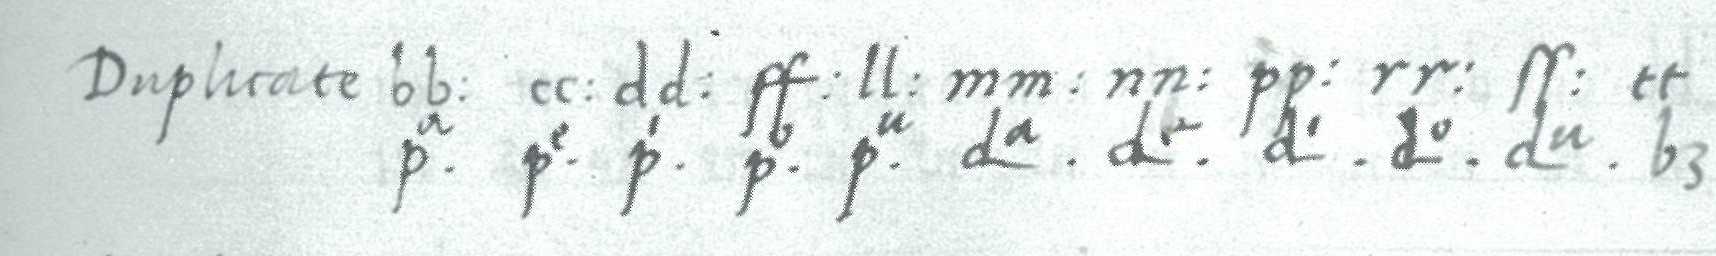 Duplicate bb: cc: dd: ff: ll: mm: nn: pp: rr: ſſ: tt
pᵃ. pᵉ. pⁱ. pᵒ. pᵘ. dᵃ. dᵉ. dⁱ. dᵒ. dᵘ. bʒ